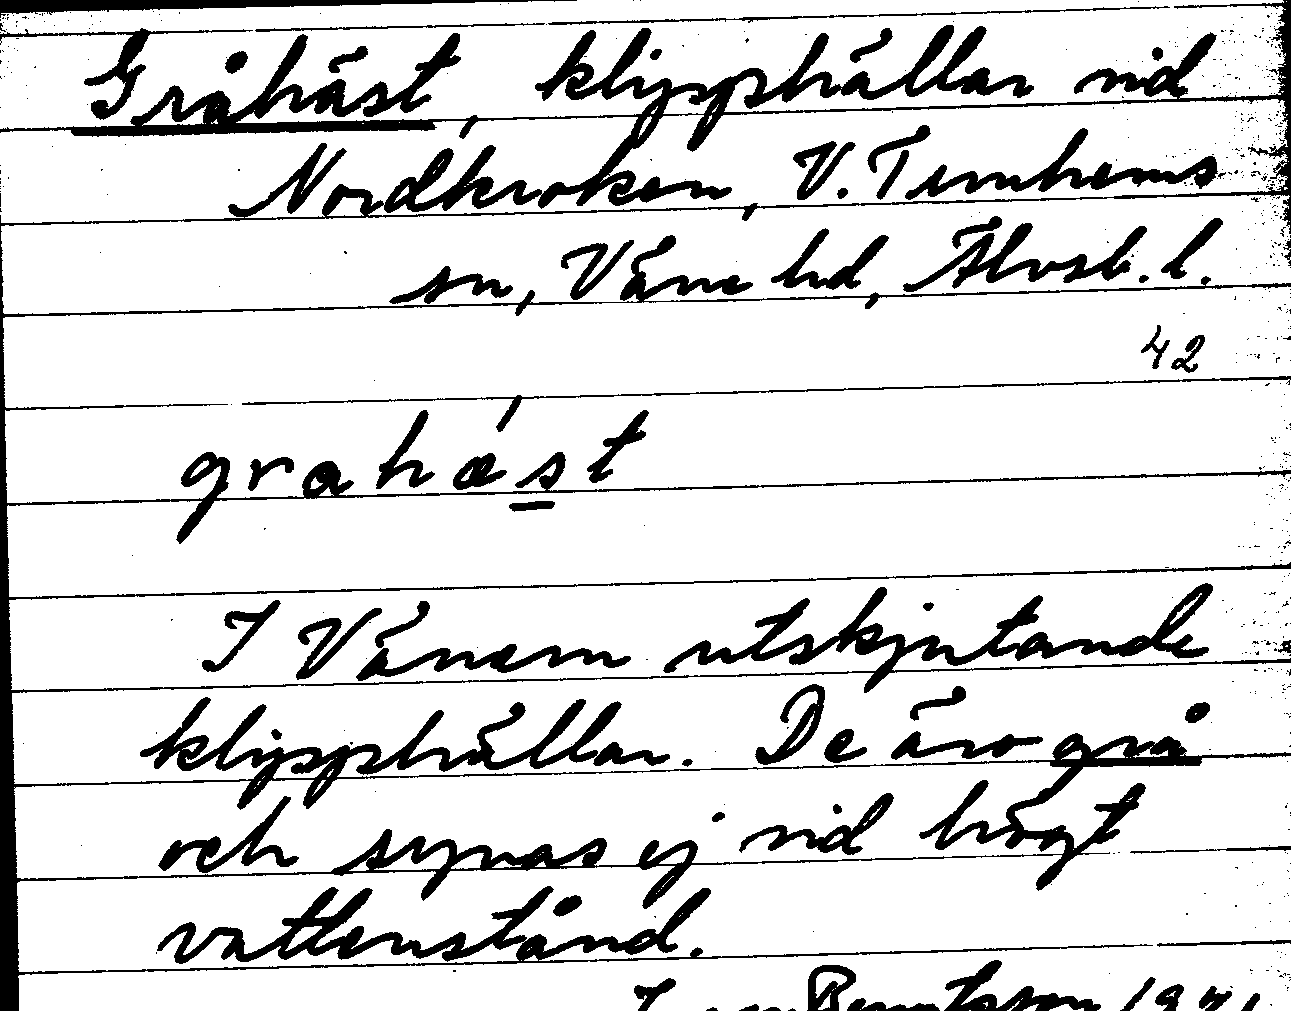 Gråhäst, klipphällar vid
Nordkroken, V. Tunhems
sn, Väne hd, Älvsb. l.
42
grahæ´st
I Vänern utskjutande
klipphällar. De äro grå
och synas ej vid högt
vattenstånd.